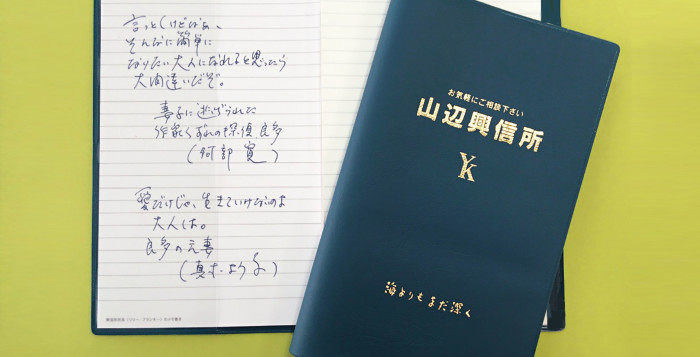 言っとくけどなぁ、
そんなに簡単に
なりたい大人になれると思ったら
大間違いだぞ。
妻子に逃げられた
作家くずれの探偵 良多
(阿部 寛)
愛だけじゃ、生きていけないのよ
大人は。
良多の元妻
(真木よう子)
お気軽にご相談下さい
山辺興信所
YK
海よりもまだ深く